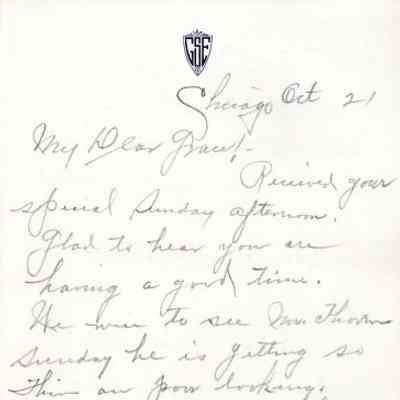 GSE
Chicago Oct 21
My Dear Grace,
Received your
special Sunday afternoon.
Glad to hear you are
having a good time.
We were to see Mr. Thorm
Sunday he is getting so
thin an poor looking,